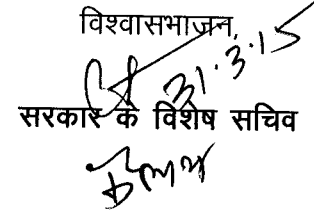 विश्वासभाजन,
31.3.15
सरकार के विशेष सचिव